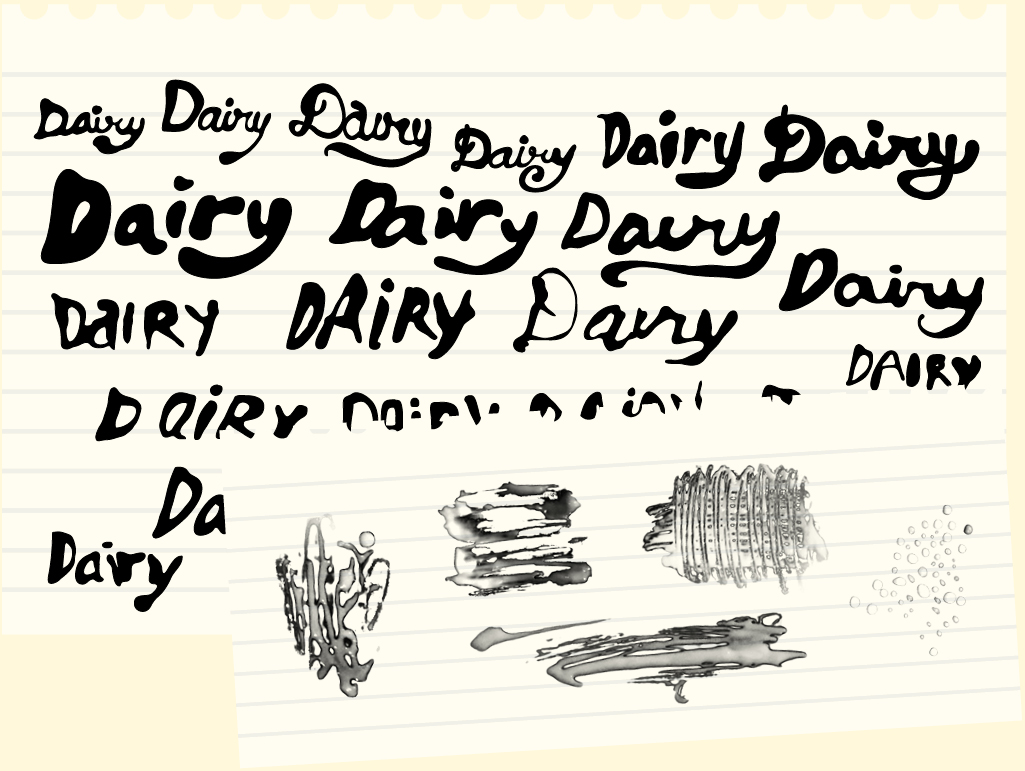 Dairy Dairy Dairy Dairy Dairy Dairy
Dairy Dairy Dairy Dairy
DaIRY DAiRY Dairy
DAIRY
DaiRY
Da
Dairy